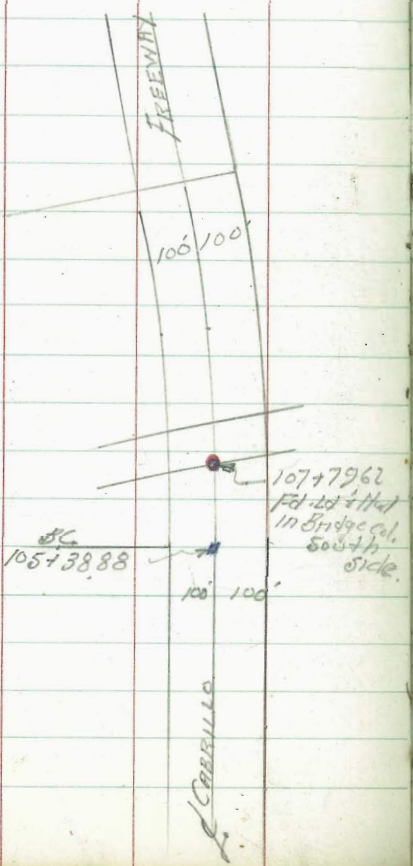 FREEWAY
100' 100'
107+7962
Fd. Ld & Hub
in Bridge
South
side.
BC
105+38.88
100' 100'
CABRILLO